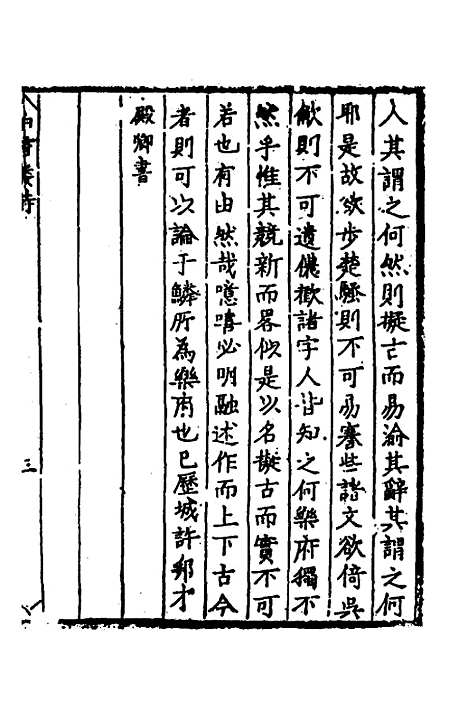 人其謂之何然則擬古而易渝其辭其謂之何
耶是故欲步楚騷則不可易蹇些諸文欲倚吳
歈則不可遺儂歡諸字人皆知之何樂府獨不
然乎惟其競新而畧似是以名擬古而實不可
若也有由然哉噫嘻必明融述作而上下古今
者則可以論于鱗所為樂府也已歷城許邦才
殿卿書
三